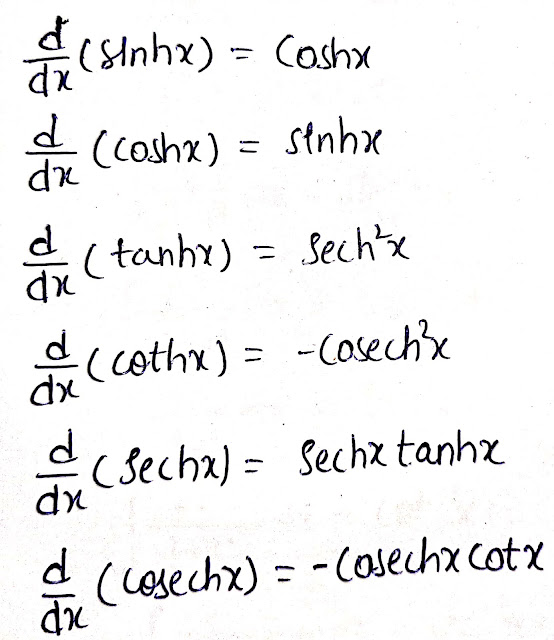 d/dx (sinhx) = Coshx
d/dx (coshx) = sinhx
d/dx (tanhx) = Sech²x
d/dx (cothx) = -Cosech²x
d/dx (Sechx) = Sechx tanhx
d/dx (cosechx) = -Cosechx cotx